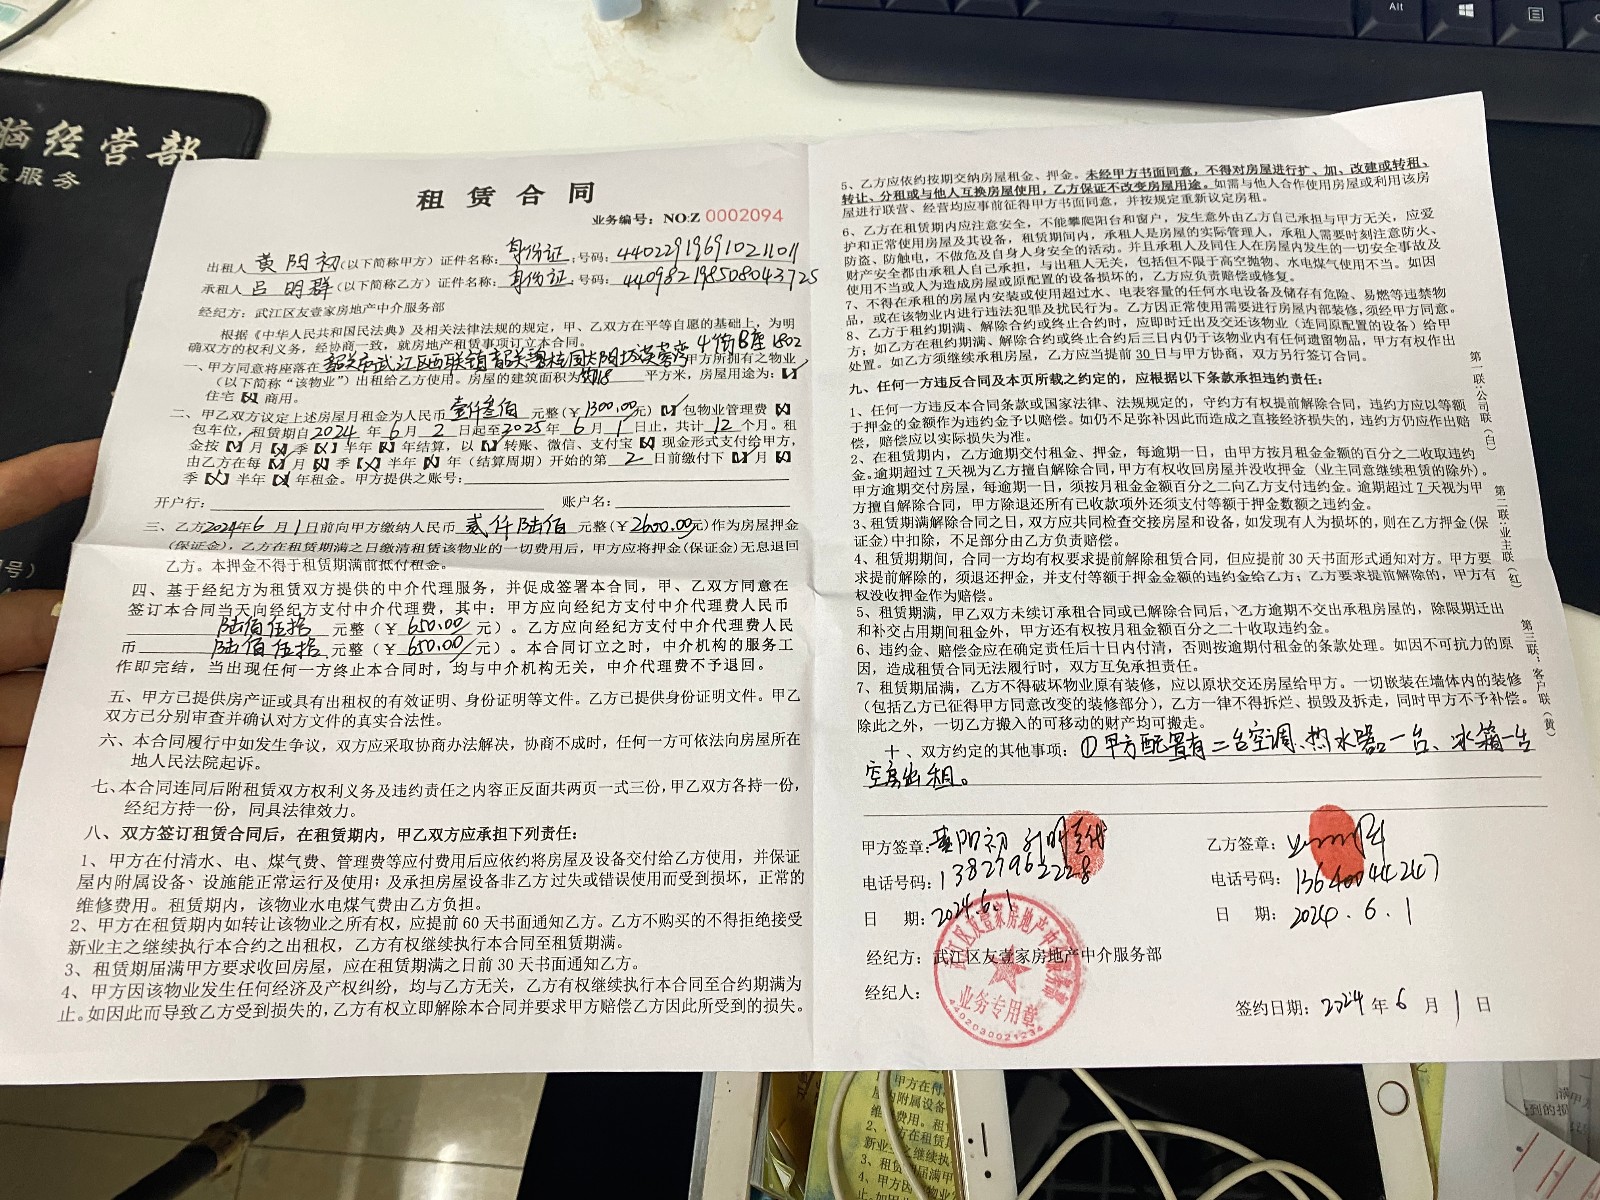 脑经营部
服务
租赁合同
业务编号：NO:Z 0002094
出租人 黄阳初（以下简称甲方）证件名称：身份证，号码：440229196910211011
承租人 吕明群（以下简称乙方）证件名称：身份证，号码：440982198508043725
经纪方：武江区友壹家房地产中介服务部
根据《中华人民共和国民法典》及相关法律法规的规定，甲、乙双方在平等自愿的基础上，为明
确双方的权利义务，经协商一致，就房地产租赁事项订立本合同。
4街B座1802
一、甲方同意将座落在 韶关市武江区西联镇韶关碧桂园太阳城芙蓉湾 甲方所拥有之物业
（以下简称“该物业”）出租给乙方使用。房屋的建筑面积为 平方米，房屋用途为：【✓】
住宅【×】商用。
二、甲乙双方议定上述房屋月租金为人民币 壹仟叁佰 元整（￥1300.00元）【✓】包物业管理费【×】
包车位，租赁期自2024年6月2日起至2025年6月1日止，共计12个月。租
金按【✓】月【×】季【×】半年【×】年结算，以【✓】转账、微信、支付宝【×】现金形式支付给甲方，
由乙方在每【✓】月【×】季【×】半年【×】年（结算周期）开始的第2日前缴付下【✓】月【×】
季【×】半年【×】年租金。甲方提供之账号：
开户行： 账户名：
三、乙方2024年6月1日前向甲方缴纳人民币 贰仟陆佰 元整（￥2600.00元）作为房屋押金
（保证金），乙方在租赁期满之日缴清租赁该物业的一切费用后，甲方应将押金(保证金)无息退回
乙方。本押金不得于租赁期满前抵付租金。
四、基于经纪方为租赁双方提供的中介代理服务，并促成签署本合同，甲、乙双方同意在
签订本合同当天向经纪方支付中介代理费，其中：甲方应向经纪方支付中介代理费人民币
陆佰伍拾 元整（￥650.00/元）。乙方应向经纪方支付中介代理费人民
币 陆佰伍拾 元整（￥650.00/元）。本合同订立之时，中介机构的服务工
作即完结，当出现任何一方终止本合同时，均与中介机构无关，中介代理费不予退回。
五、甲方已提供房产证或具有出租权的有效证明、身份证明等文件。乙方已提供身份证明文件。甲乙
双方已分别审查并确认对方文件的真实合法性。
六、本合同履行中如发生争议，双方应采取协商办法解决，协商不成时，任何一方可依法向房屋所在
地人民法院起诉。
七、本合同连同后附租赁双方权利义务及违约责任之内容正反面共两页一式三份，甲乙双方各持一份，
经纪方持一份，同具法律效力。
八、双方签订租赁合同后，在租赁期内，甲乙双方应承担下列责任：
1、甲方在付清水、电、煤气费、管理费等应付费用后应依约将房屋及设备交付给乙方使用，并保证
屋内附属设备、设施能正常运行及使用；及承担房屋设备非乙方过失或错误使用而受到损坏，正常的
维修费用。租赁期内，该物业水电煤气费由乙方负担。
2、甲方在租赁期内如转让该物业之所有权，应提前60天书面通知乙方。乙方不购买的不得拒绝接受
新业主之继续执行本合约之出租权，乙方有权继续执行本合同至租赁期满。
3、租赁期届满甲方要求收回房屋，应在租赁期满之日前30天书面通知乙方。
4、甲方因该物业发生任何经济及产权纠纷，均与乙方无关，乙方有权继续执行本合同至合约期满为
止。如因此而导致乙方受到损失的，乙方有权立即解除本合同并要求甲方赔偿乙方因此所受到的损失。
5、乙方应依约按期交纳房屋租金、押金。未经甲方书面同意，不得对房屋进行扩、加、改建或转租、
转让、分租或与他人互换房屋使用，乙方保证不改变房屋用途。如需与他人合作使用房屋或利用该房
屋进行联营、经营均应事前征得甲方书面同意，并按规定重新议定房租。
6、乙方在租赁期内应注意安全，不能攀爬阳台和窗户，发生意外由乙方自己承担与甲方无关，应爱
护和正常使用房屋及其设备，租赁期间内，承租人是房屋的实际管理人，承租人需要时刻注意防火、
防盗、防触电，不做危及自身人身安全的活动。并且承租人及同住人在房屋内发生的一切安全事故及
财产安全都由承租人自己承担，与出租人无关，包括但不限于高空抛物、水电煤气使用不当。如因
使用不当或人为造成房屋或原配置的设备损坏的，乙方应负责赔偿或修复。
7、不得在承租的房屋内安装或使用超过水、电表容量的任何水电设备及储存有危险、易燃等违禁物
品，或在该物业内进行违法犯罪及扰民行为。乙方因正常使用需要进行房屋内部装修,须经甲方同意。
8、乙方于租约期满、解除合约或终止合约时，应即时迁出及交还该物业（连同原配置的设备）给甲
方；如乙方在租约期满、解除合约或终止合约后三日内仍于该物业内有任何遗留物品，甲方有权作出
处置。如乙方须继续承租房屋，乙方应当提前30日与甲方协商，双方另行签订合同。
九、任何一方违反合同及本页所载之约定的，应根据以下条款承担违约责任：
1、任何一方违反本合同条款或国家法律、法规规定的，守约方有权提前解除合同，违约方应以等额
于押金的金额作为违约金予以赔偿。如仍不足弥补因此而造成之直接经济损失的，违约方仍应作出赔
偿，赔偿应以实际损失为准。
2、在租赁期内，乙方逾期交付租金、押金，每逾期一日，由甲方按月租金金额的百分之二收取违约
金。逾期超过7天视为乙方擅自解除合同，甲方有权收回房屋并没收押金（业主同意继续租赁的除外）。
甲方逾期交付房屋，每逾期一日，须按月租金金额百分之二向乙方支付违约金。逾期超过7天视为甲
方擅自解除合同，甲方除退还所有已收款项外还须支付等额于押金数额之违约金。
3、租赁期满解除合同之日，双方应共同检查交接房屋和设备，如发现有人为损坏的，则在乙方押金(保
证金)中扣除，不足部分由乙方负责赔偿。
4、租赁期期间，合同一方均有权要求提前解除租赁合同，但应提前30天书面形式通知对方。甲方要
求提前解除的，须退还押金，并支付等额于押金金额的违约金给乙方；乙方要求提前解除的，甲方有
权没收押金作为赔偿。
5、租赁期满，甲乙双方未续订承租合同或已解除合同后，乙方逾期不交出承租房屋的，除限期迁出
和补交占用期间租金外，甲方还有权按月租金额百分之二十收取违约金。
6、违约金、赔偿金应在确定责任后十日内付清，否则按逾期付租金的条款处理。如因不可抗力的原
因，造成租赁合同无法履行时，双方互免承担责任。
7、租赁期届满，乙方不得破坏物业原有装修，应以原状交还房屋给甲方。一切嵌装在墙体内的装修
（包括乙方已征得甲方同意改变的装修部分），乙方一律不得拆烂、损毁及拆走，同时甲方不予补偿。
除此之外，一切乙方搬入的可移动的财产均可搬走。
十、双方约定的其他事项：①甲方配置有二台空调、热水器一台、冰箱一台
空房出租。
甲方签章：黄阳初
电话号码：13827962228
日 期：2024.6.1
乙方签章：
电话号码：13640044247
日 期：2024.6.1
经纪方：武江区友壹家房地产中介服务部
经纪人：
签约日期：2024年6月1日
武江区友壹家房地产中介服务部
业务专用章
4402030021234
第一联：公司联（白）
第二联：业主联（红）
第三联：客户联（黄）
Alt